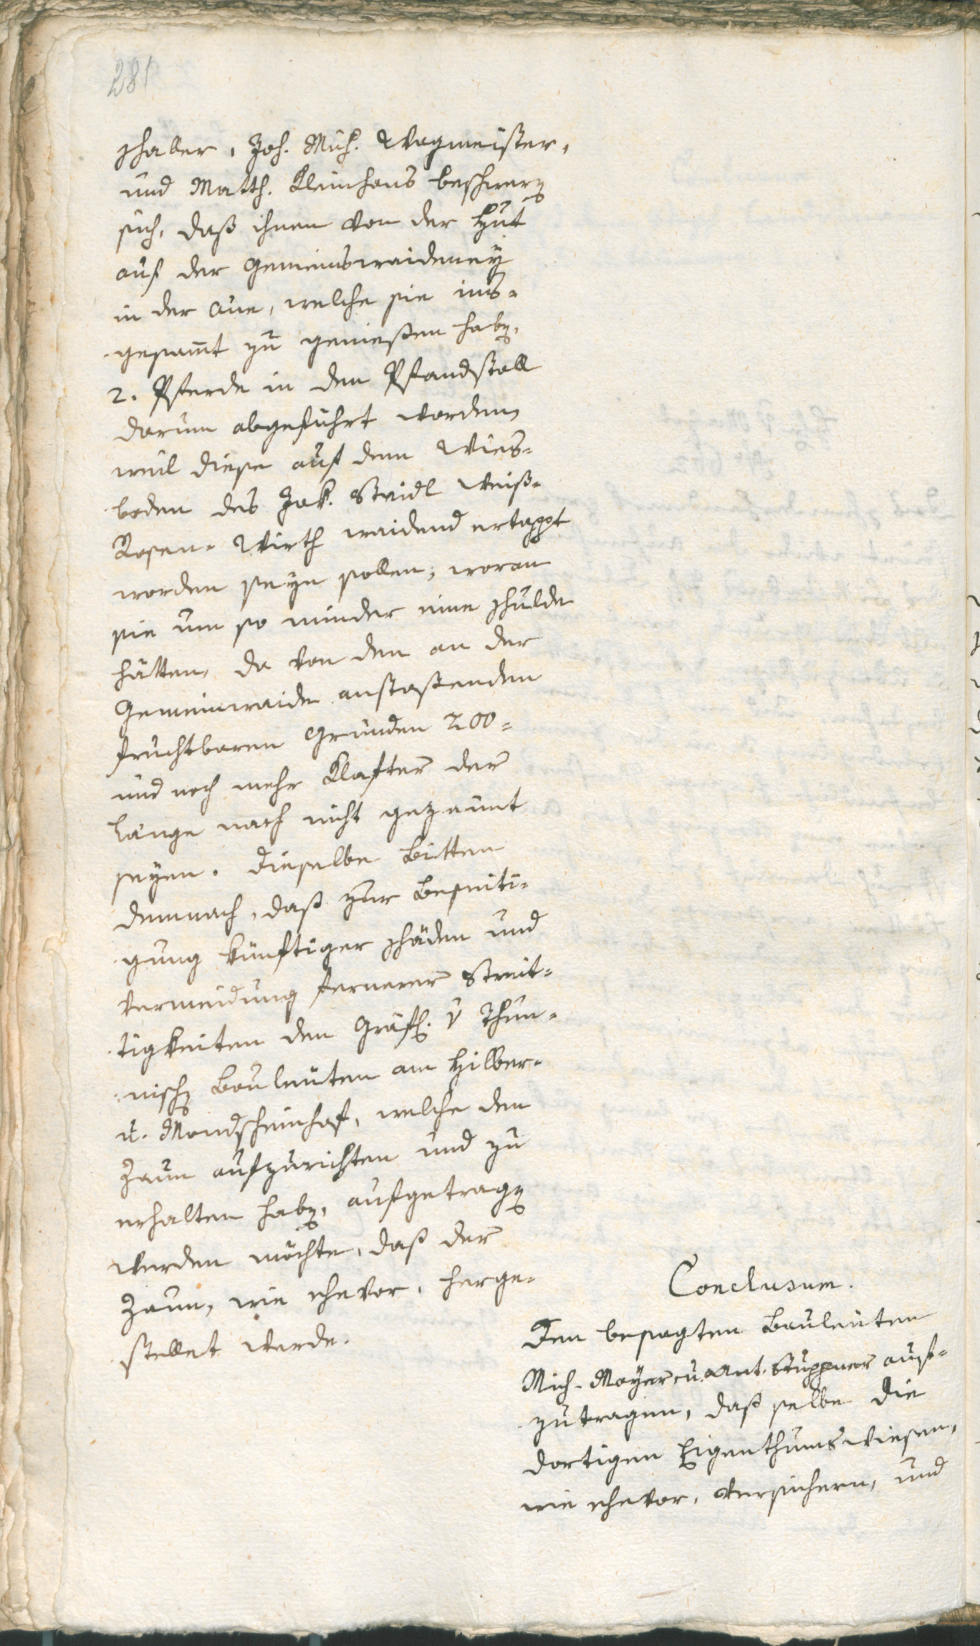 281
schaller, Joh. Mich. Wegmeister,
und Matth. Kleinhans beschwerẽ
sich, daß ihnen von der Hut
auf der Gemeinswaideney
in der Aue, welche sie ins-
gesam̃t zu geniessen habẽ,
2. Pferde in den Pfandstall
darum abgeführt worden,
weil diese auf dem Wies-
boden des Jak. Steidl Weiß-
Rosen-Wirth waidend ertappt
worden seyn sollen; woran
sie um so minder eine schulde
hätten, da von den an der
Gemeinwaide anstossenden
fruchtbaren Gründen 200-
und noch mehr Klafter der
Länge nach nicht gezäunt
seyen. Dieselbe bitten
demnach, daß zur Beseiti-
gung künftiger schäden und
Vermeidung fernerer Streit-
tigkeiten den Gräfl. v Thun-
nischẽ Bauleuten am Hilber-
u. Mondscheinhof, welche den
Zaun aufzurichten und zu
erhalten habẽ, aufgetragẽ
werden möchte, daß der
Zaun, wie ehevor, herge-
stellet werde.
Conclusum.
Den besagten Bauleuten
Mich. Mayer u. Ant. Stuppner auf-
zutragen, daß selbe die
dortigen Eigenthumswiesen,
wie ehevor, versichern, und